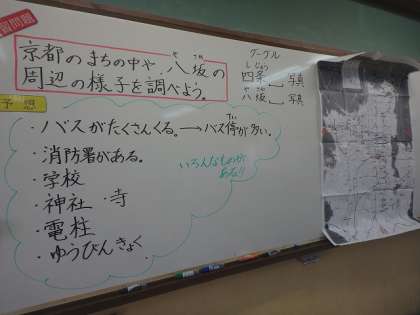 習問題
京都のまちの中や、八坂の
や さか
周辺の様子を調べよう。
予想
・バスがたくさんくる。→バス停が多い。
てい
・消防署がある。
・学校
・神社・寺
・電柱
・ゆうびんきょく
いろんなものが
ある!!
グーグル
しじょう
四条 写真
やさか
八坂 写真